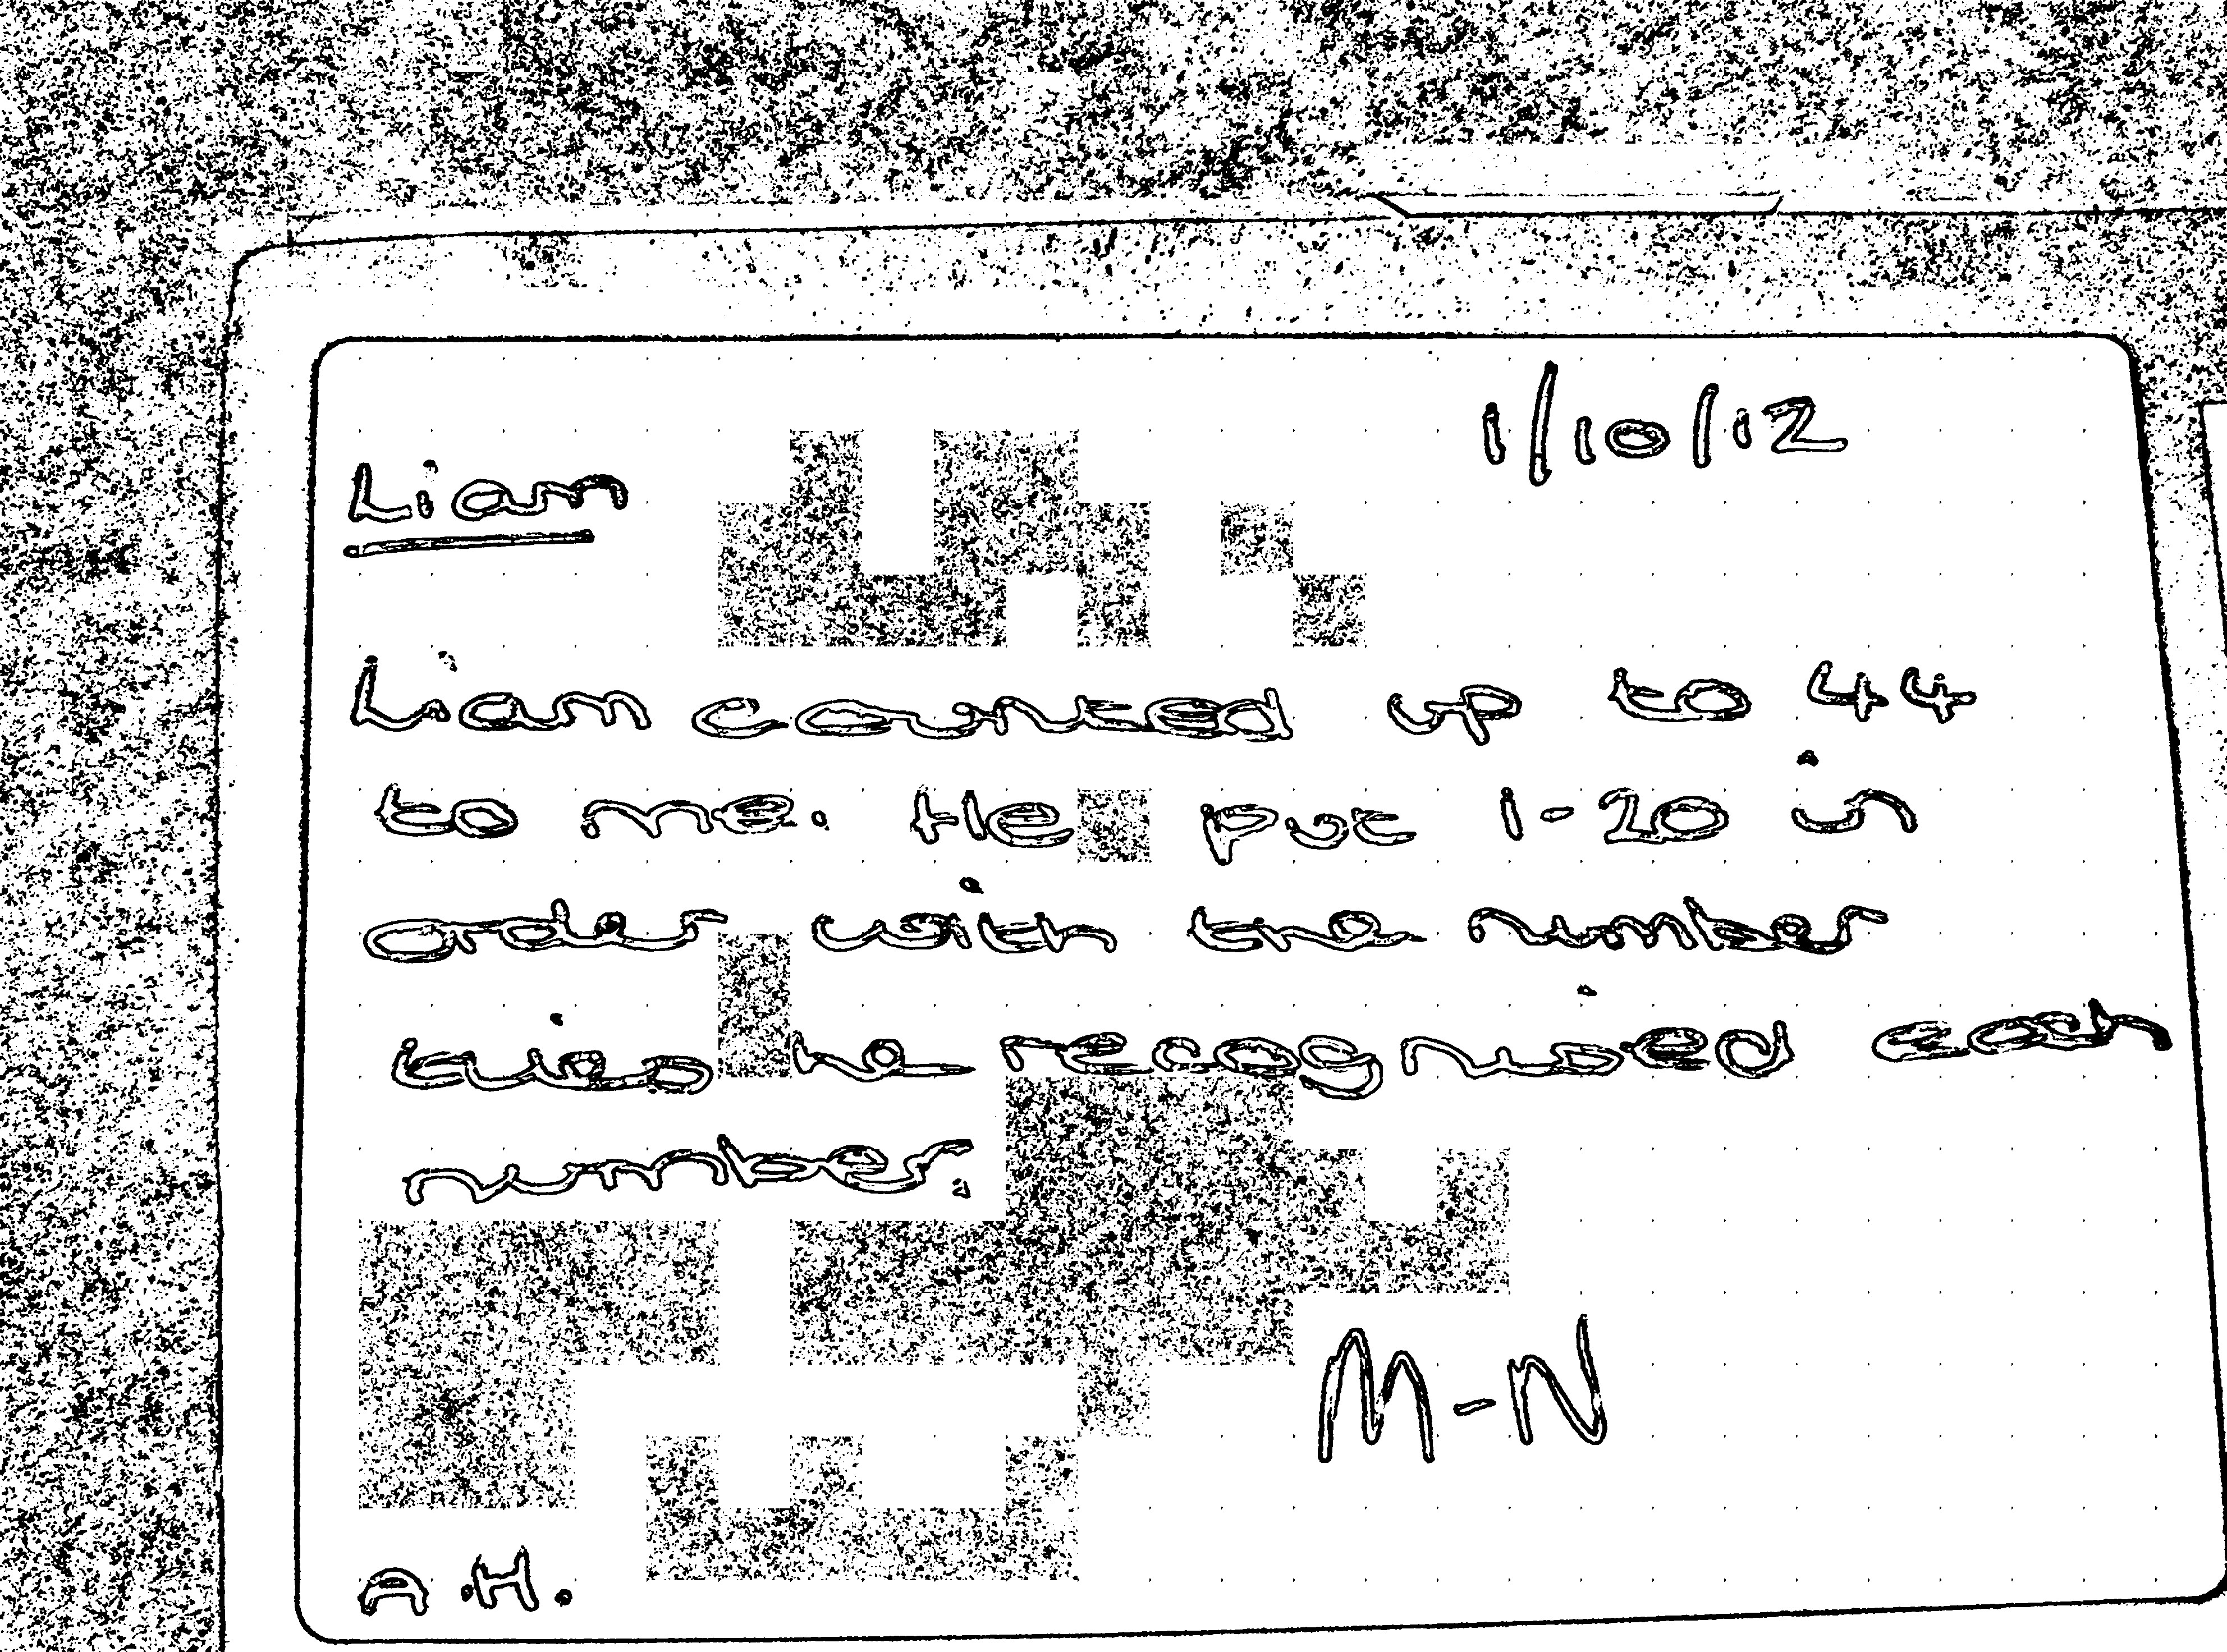 1/10/12
Liam
Liam counted up to 44
to me. He put 1-20 in
order with the number
he recognised each
number.
M-N
A.H.